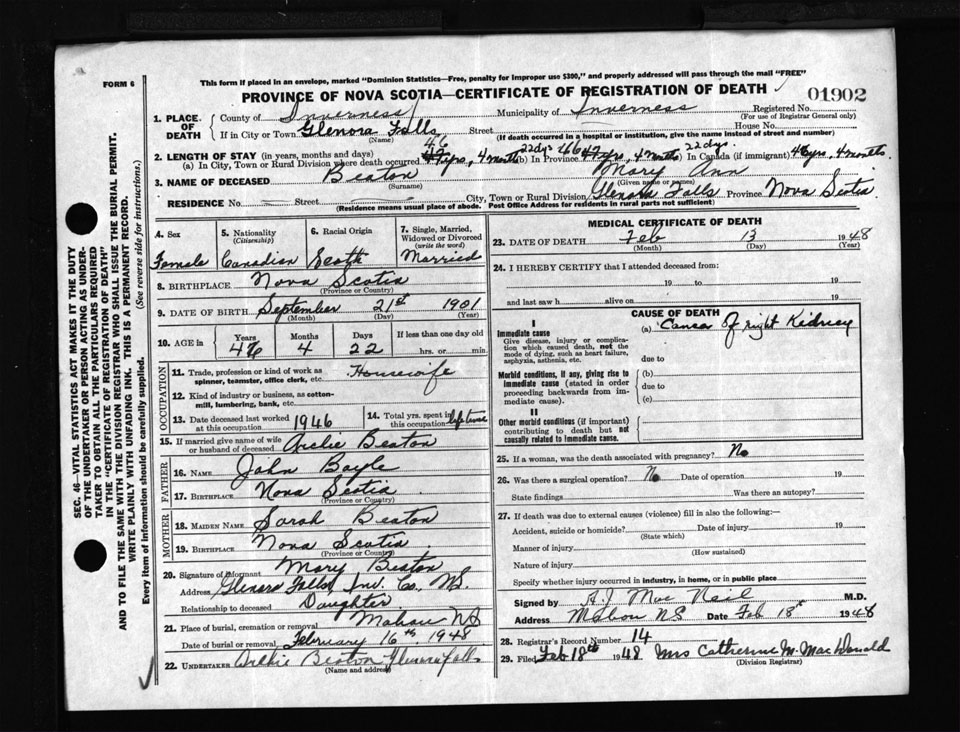 FORM 6
This form if placed in an envelope, marked "Dominion Statistics—Free, penalty for improper use $300," and properly addressed will pass through the mail "FREE"
PROVINCE OF NOVA SCOTIA—CERTIFICATE OF REGISTRATION OF DEATH 01902
1. PLACE OF DEATH County of Inverness Municipality of Inverness Registered No.
(For use of Registrar General only)
If in City or Town Glenora Falls Street House No.
(Name) (If death occurred in a hospital or institution, give the name instead of street and number)
46 22dys 46 22 dys.
2. LENGTH OF STAY (in years, months and days)
(a) In City, Town or Rural Division where death occurred 47 yrs, 4 months (b) In Province 47 yrs, 4 months In Canada (if immigrant) 46 yrs, 4 months.
3. NAME OF DECEASED Beaton Mary Ann
(Surname) (Given name or names)
RESIDENCE No. Street City, Town or Rural Division Glenora Falls Province Nova Scotia
(Residence means usual place of abode. Post Office Address for residents in rural parts not sufficient)
4. Sex Female
5. Nationality (Citizenship) Canadian
6. Racial Origin Scotch
7. Single, Married, Widowed or Divorced (write the word) Married
8. BIRTHPLACE Nova Scotia
(Province or Country)
9. DATE OF BIRTH September 21st 1901
(Month) (Day) (Year)
10. AGE in Years Months Days If less than one day
46 4 22 hrs. or min.
OCCUPATION
11. Trade, profession or kind of work as spinner, teamster, office clerk, etc. Housewife
12. Kind of industry or business, as cotton-mill, lumbering, bank, etc.
13. Date deceased last worked at this occupation 1946
14. Total yrs. spent in this occupation life time
15. If married give name of wife or husband of deceased Archie Beaton
FATHER
16. NAME John Boyle
17. BIRTHPLACE Nova Scotia
(Province or Country)
MOTHER
18. MAIDEN NAME Sarah Beaton
19. BIRTHPLACE Nova Scotia
(Province or Country)
20. Signature of informant Mary Beaton
Address Glenora Falls, Inv. Co. N.S.
Relationship to deceased Daughter
21. Place of burial, cremation or removal Mabou NS
Date of burial or removal February 16th 1948
22. UNDERTAKER Archie Beaton Glenora Falls
(Name and address)
MEDICAL CERTIFICATE OF DEATH
23. DATE OF DEATH Feb 13 1948
(Month) (Day) (Year)
24. I HEREBY CERTIFY that I attended deceased from:
19 to 19
and last saw h alive on 19
CAUSE OF DEATH
I
Immediate cause (a) Cancer of right Kidney
Give disease, injury or complication which caused death, not the mode of dying, such as heart failure, asphyxia, asthenia, etc.
due to
Morbid conditions, if any, giving rise to immediate cause (stated in order proceeding backwards from immediate cause).
(b)
due to
(c)
II
Other morbid conditions (if important) contributing to death but not causally related to immediate cause.
25. If a woman, was the death associated with pregnancy? No
26. Was there a surgical operation? No Date of operation 19
State findings Was there an autopsy?
27. If death was due to external causes (violence) fill in also the following:—
Accident, suicide or homicide? Date of injury 19
(State which)
Manner of injury
(How sustained)
Nature of injury
Specify whether injury occurred in industry, in home, or in public place
Signed by A.J. Mac Neil M.D.
Address Mabou NS Date Feb 18th 1948
28. Registrar's Record Number 14
29. Filed Feb 18th 1948 Mrs Catherine M. MacDonald
(Division Registrar)
SEC. 46—VITAL STATISTICS ACT MAKES IT THE DUTY
OF THE UNDERTAKER OR PERSON ACTING AS UNDER-
TAKER TO OBTAIN ALL THE PARTICULARS REQUIRED
IN THE "CERTIFICATE OF REGISTRATION OF DEATH"
AND TO FILE THE SAME WITH THE DIVISION REGISTRAR WHO SHALL ISSUE THE BURIAL PERMIT.
WRITE PLAINLY WITH UNFADING INK. THIS IS A PERMANENT RECORD.
Every item of information should be carefully supplied. (See reverse side for instructions.)